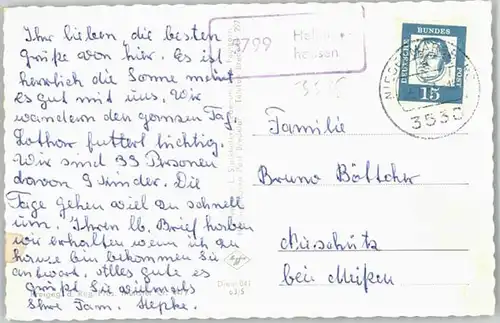 Ihr lieben, die besten
grüße von hier. Es ist
herrlich die Sonne meint
es gut mit uns. Wir
wandern den ganzen Tag.
Lothar futtert tüchtig.
Wir sind 33 Personen
davon 9 Kinder. Die
Tage gehen viel zu schnell
um. Ihren lb. Brief haben
wir erhalten wenn ich zu
hause bin bekommen Sie
antwort. Alles gute es
grüßt Sie vielmals
Ihre Fam. Hepke.
3799
hausen
DEUTSCHE BUNDESPOST
15
3535
Familie
Bruno Böttcher
bei Meißen
Agfa